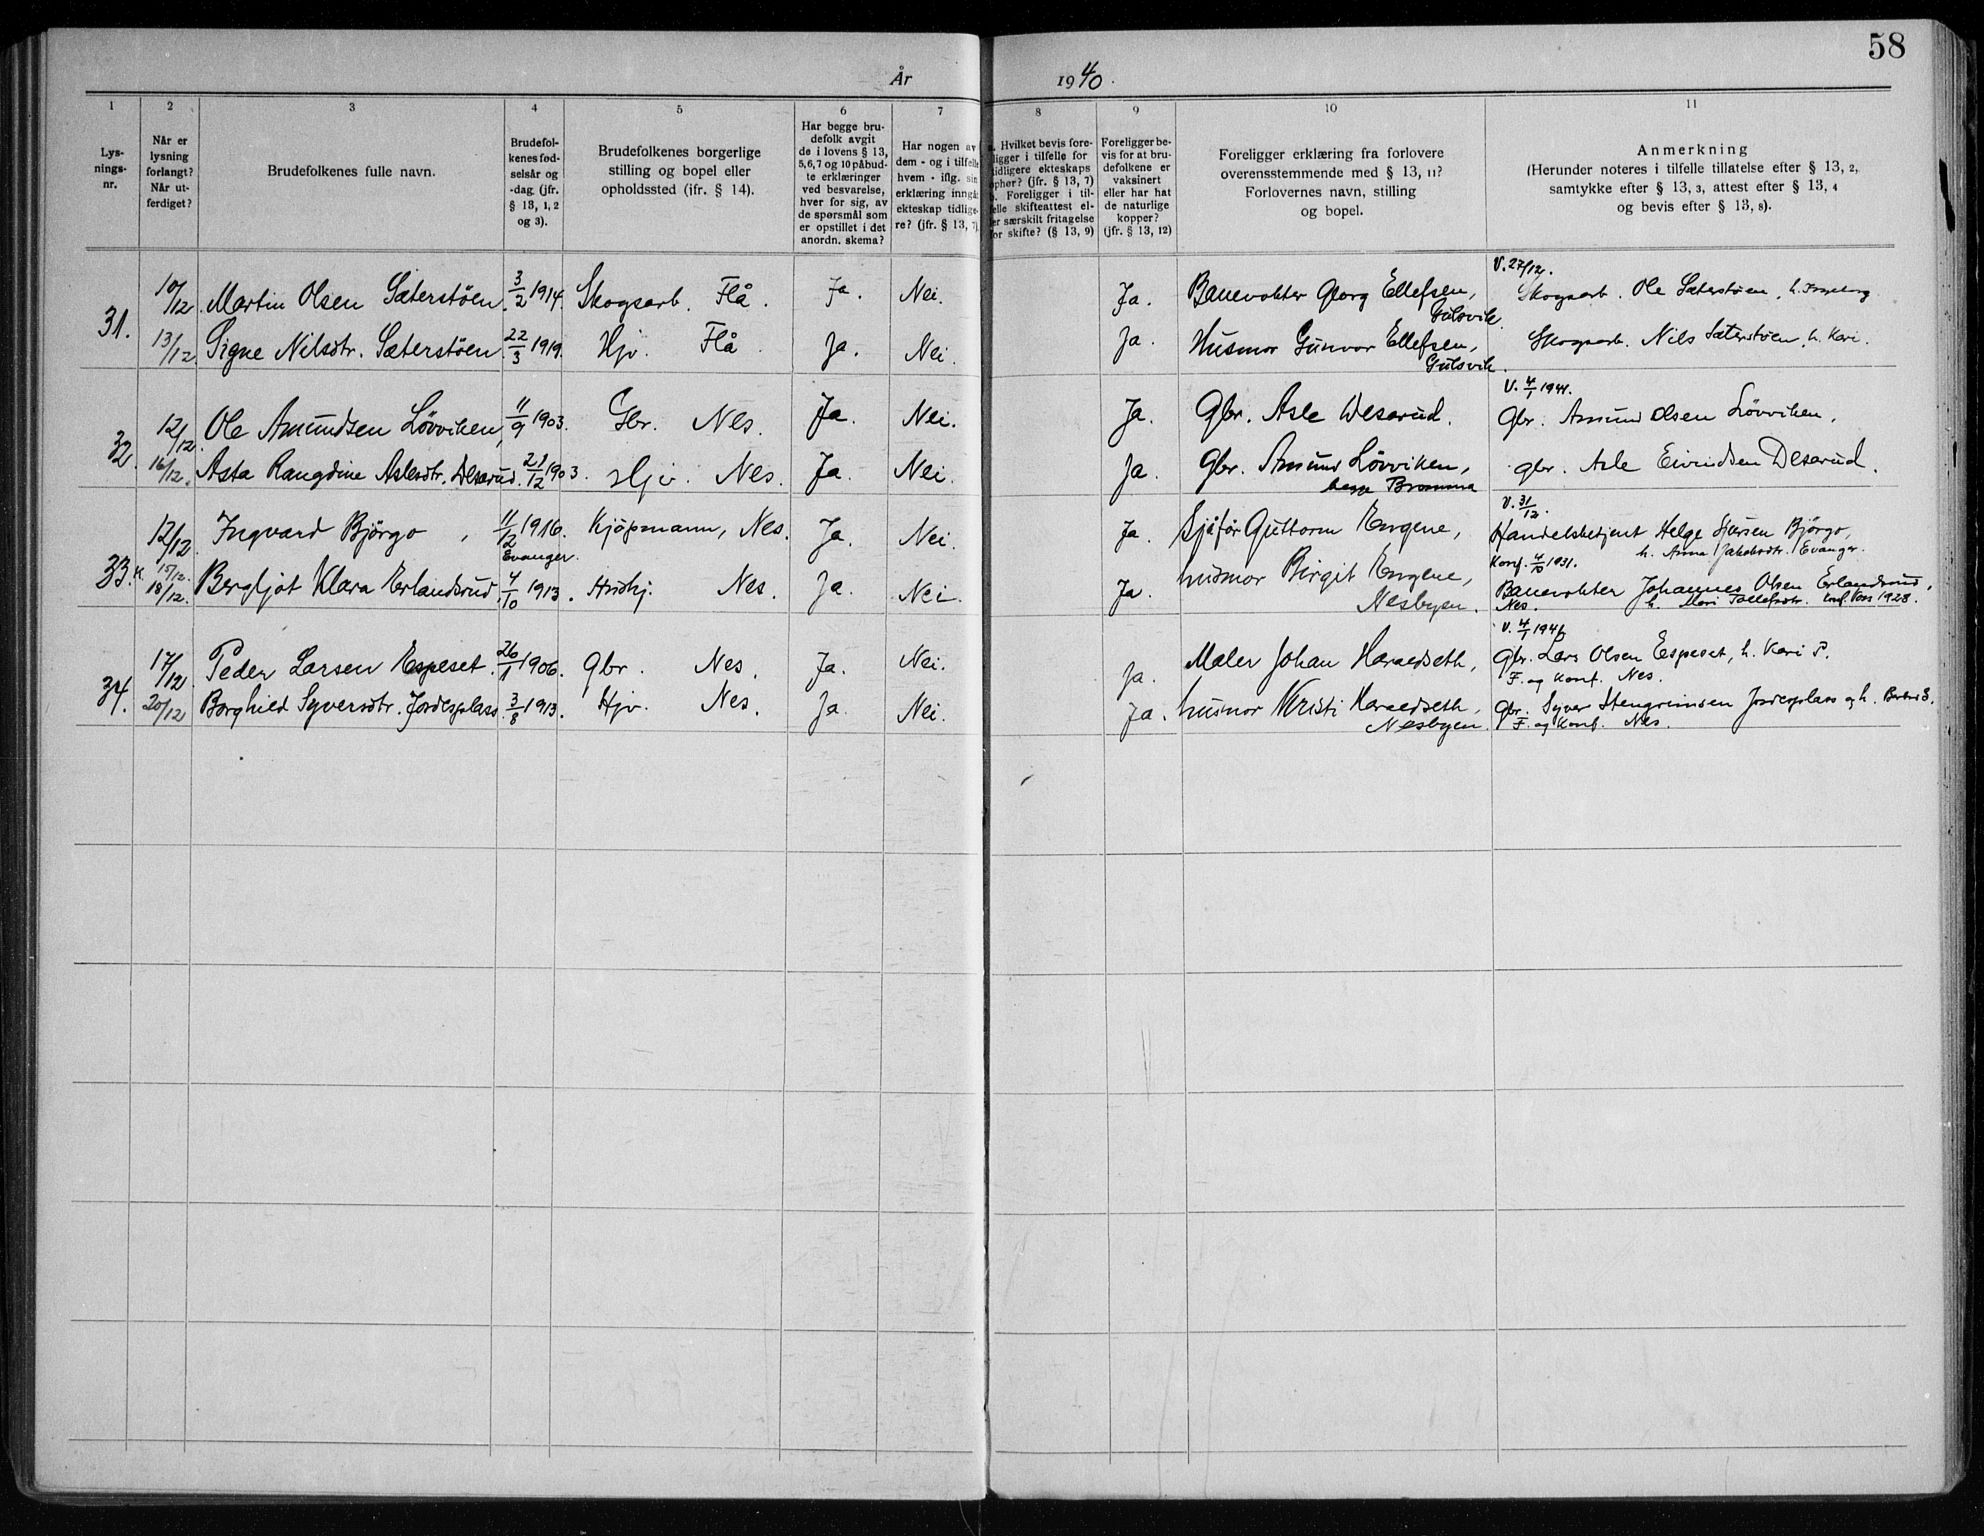 58
År 1940.
1 2 3 4 5 6 7 8 9 10 11
Lys-
nings-
nr.
Når er
lysning
forlangt?
Når ut-
ferdiget?
Brudefolkenes fulle navn.
Brudefol-
kenes fød-
selsår og
-dag (jfr.
§ 13, 1, 2
og 3).
Brudefolkenes borgerlige
stilling og bopel eller
opholdssted (ifr. § 14).
Har begge bru-
defolk avgit
de i lovens § 13,
5,6,7 og 10 påbud-
te erklæringer
ved besvarelse,
hver for sig, av
de spørsmål som
er opstillet i det
anordn. skema?
Har nogen av
dem - og i tilfelle
hvem - iflg. sin
erklæring inngå
ekteskap tidlige-
re? (jfr. § 13, 7)
. Hvilket bevis fore-
ligger i tilfelle for
tidligere ekteskaps
ophør? (jfr. § 13, 7)
b. Foreligger i til-
felle skifteattest el-
er særskilt fritagelse
for skifte? (§ 13, 9)
Foreligger be-
vis for at bru-
defolkene er
vaksinert
eller har hat
de naturlige
kopper?
(jfr. § 13, 12)
Foreligger erklæring fra forlovere
overensstemmende med § 13, 11?
Forlovernes navn, stilling
og bopel.
Anmerkning
(Herunder noteres i tilfelle tillatelse efter § 13, 2,
samtykke efter § 13, 3, attest efter § 13, 4
og bevis efter § 13, 8).
V. 27/12.
31. 10/12 Martin Olsen Sæterstøen. 3/2 1914. Skogsarb. Flå. Ja. Nei. Ja. Banevokter Georg Ellefsen, Skogsarb. Ole Sæterstøen, h. Ingeborg
Gulsvik.
13/12 Signe Nilsdtr. Sæterstøen. 22/3 1919. Hjv. Flå. Ja. Nei. Ja. Husmor Gunvor Ellefsen, Skogsarb. Nils Sæterstøen, h. Kari.
Gulsvik.
V. 4/1 1941.
32. 12/12. Ole Amundsen Løvviken, 11/9 1903. Gbr. Nes. Ja. Nei. Ja. Gbr. Asle Deserud. Gbr. Amund Olsen Løvviken.
16/12. Asta Rangdine Aslesdtr. Deserud. 21/12 1903. Hjv. Nes. Ja. Nei. Ja. Gbr. Amund Løvviken, gbr. Asle Eivindsen Deserud.
begge Bromma
V. 31/12.
33. 12/12. Ingvard Bjørgo, 11/2 1916. Kjøpmann, Nes. Ja. Nei. Ja. Sjåfør Guttorm Engene, Handelsbetjent Helge Bjørgo,
Evanger. h. Anna Jakobsdtr. Evanger.
K. 15/12. Konf. 4/10 1931.
18/12. Bergljot Klara Erlandsrud. 4/10 1913. Hushj. Nes. Ja. Nei. Ja. husmor Birgit Engene, Banevokter Johannes Olsen Erlandsrud,
Nesbyen. Nes. h. Mari Tollefsdtr. konf. Voss 1928.
V. 4/1 1941
34. 17/12 Peder Larsen Espeset. 26/1 1906. gbr. Nes. Ja. Nei. Ja. Maler Johan Haraldseth, Gbr. Lars Olsen Espeset, h. Kari P.
F. og konf. Nes.
20/12 Borghild Syversdtr. Jordesplass 3/8 1913. Hjv. Nes. Ja. Nei. Ja. husmor Kristi Haraldseth, Gbr. Syver Stengrimsen Jordesplass og h. S.
Nesbyen. F. og Konf. Nes.